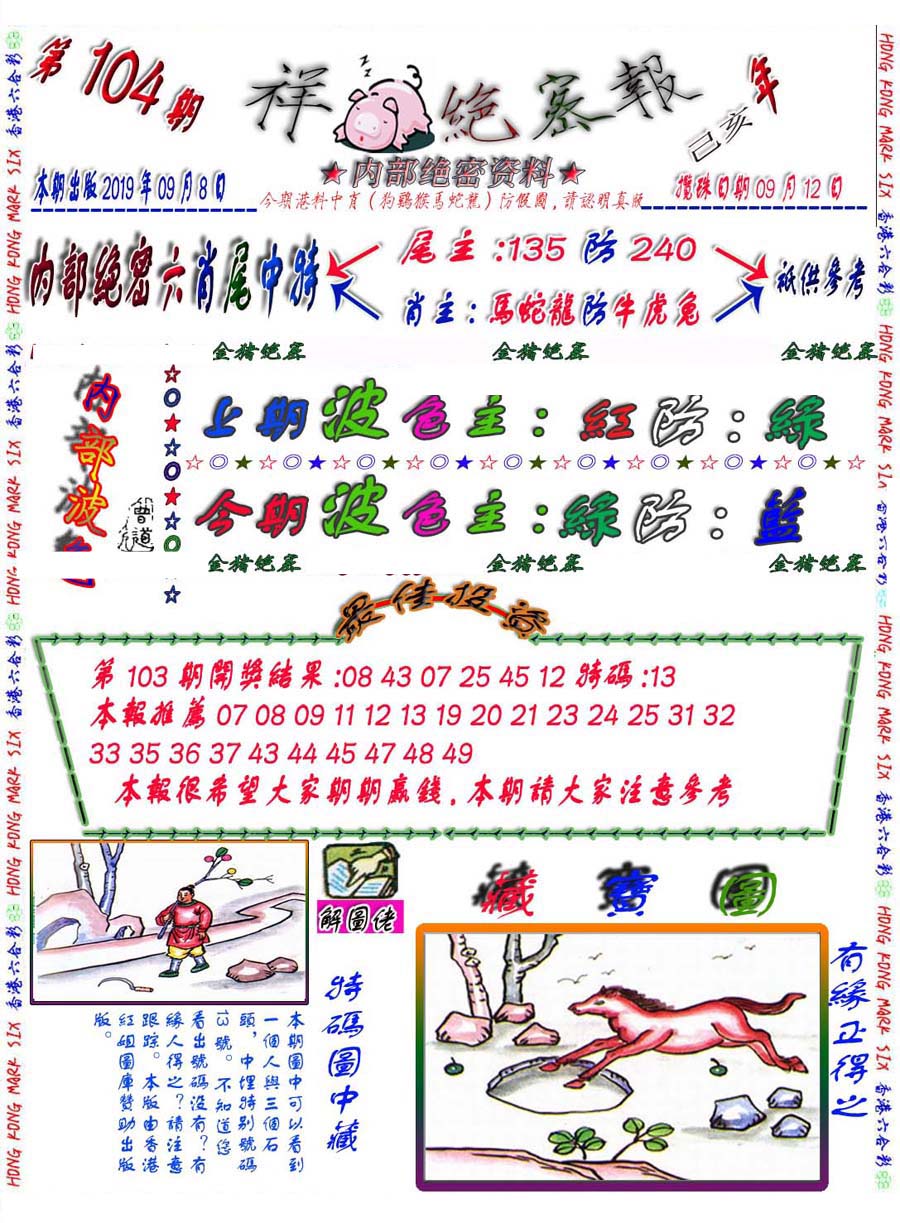 第104期
祥 絕密報
己亥年
★内部绝密资料★
本期出版2019年09月8日
攪珠日期09月12日
今期港料中肖(狗鷄猴馬蛇龍)防假圖,請認明真版
内部絕密六肖尾中特
尾主:135防240
肖主:馬蛇龍防牛虎兔
祇供參考
金猪绝密 金猪绝密 金猪绝密
内部波
曾道
上期波色主:紅防:綠
今期波色主:綠防:藍
金猪绝密 金猪绝密 金猪绝密
最佳投
第103期開獎結果:08 43 07 25 45 12 特碼:13
本報推薦07 08 09 11 12 13 19 20 21 23 24 25 31 32
33 35 36 37 43 44 45 47 48 49
本報很希望大家期期贏錢,本期請大家注意參考
解圖佬
藏寶圖
特碼圖中藏
有緣正得之
本期圖中可以看到
一個人與三個石
頭,中埋特別號碼
13號。不知道您
看出號碼没有?有
緣人得之?請注意
跟踪。本版由香港
紅姐圖庫贊助出版
版。
HONG KONG MARK SIX 香港六合彩 HONG KONG MARK SIX 香港六合彩 HONG KONG MARK SIX 香港六合彩 HONG KONG MARK SIX 香港六合彩
HONG KONG MARK SIX 香港六合彩 HONG KONG MARK SIX 香港六合彩 HONG KONG MARK SIX 香港六合彩 HONG KONG MARK SIX 香港六合彩